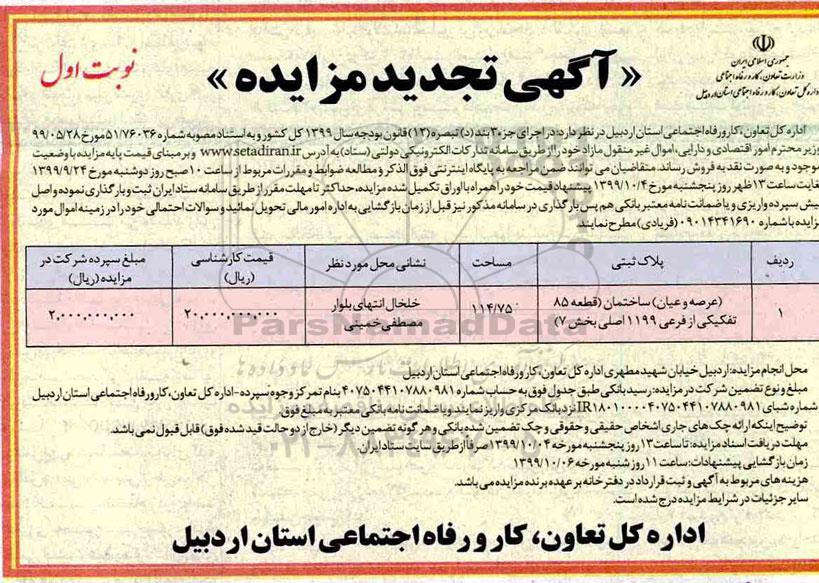 جمهوری اسلامی ایران
وزارت تعاون، کار و رفاه اجتماعی
اداره کل تعاون، کار و رفاه اجتماعی استان اردبیل
« آگهی تجدید مزایده »
نوبت اول
اداره کل تعاون، کار و رفاه اجتماعی استان اردبیل در نظر دارد: در اجرای جزء ۳ بند (د) تبصره (۱۲) قانون بودجه سال ۱۳۹۹ کل کشور و به استناد مصوبه شماره ۵۱/۷۶۰۳۶ مورخ ۹۹/۰۵/۲۸
وزیر محترم امور اقتصادی و دارایی، اموال غیر منقول مازاد خود را از طریق سامانه تدارکات الکترونیکی دولتی (ستاد) به آدرس www.setadiran.ir و بر مبنای قیمت پایه مزایده با وضعیت
موجود و به صورت نقد به فروش رساند. متقاضیان می توانند ضمن مراجعه به پایگاه اینترنتی فوق الذکر و مطالعه ضوابط و مقررات مربوط از ساعت ۱۰ صبح روز دوشنبه مورخ ۱۳۹۹/۹/۲۴
لغایت ساعت ۱۳ ظهر روز پنجشنبه مورخ ۱۳۹۹/۱۰/۴ پیشنهاد قیمت خود را همراه با اوراق تکمیل شده مزایده، حداکثر تا مهلت مقرر از طریق سامانه ستاد ایران ثبت و بارگذاری نموده و اصل
فیش سپرده واریزی و یا ضمانت نامه معتبر بانکی هم پس بارگذاری در سامانه مذکور نیز قبل از زمان بازگشایی به اداره امور مالی تحویل نمائید و سوالات احتمالی خود را در زمینه اموال مورد
مزایده با شماره ۰۹۰۱۴۳۴۱۶۹۰ (فریادی) مطرح نمایند.
ردیف	پلاک ثبتی	مساحت	نشانی محل مورد نظر	قیمت کارشناسی (ریال)	مبلغ سپرده شرکت در مزایده (ریال)
۱	(عرصه و عیان) ساختمان (قطعه ۸۵ تفکیکی از فرعی ۱۱۹۹ اصلی بخش ۷)	۱۱۴/۷۵	خلخال انتهای بلوار مصطفی خمینی	۲۰,۰۰۰,۰۰۰,۰۰۰	۲,۰۰۰,۰۰۰,۰۰۰
ParsNamadData
محل انجام مزایده: اردبیل خیابان شهید مطهری اداره کل تعاون، کار و رفاه اجتماعی استان اردبیل
مبلغ و نوع تضمین شرکت در مزایده: رسید بانکی طبق جدول فوق به حساب شماره ۴۰۷۵۰۴۴۱۰۷۸۸۰۹۸۱ بنام تمرکز وجوه سپرده - اداره کل تعاون، کار و رفاه اجتماعی استان اردبیل
شماره شبای IR۱۸۰۱۰۰۰۰۴۰۷۵۰۴۴۱۰۷۸۸۰۹۸۱ نزد بانک مرکزی واریز نمایند و یا ضمانت نامه بانکی معتبر به مبلغ فوق.
توضیح اینکه ارائه چک های جاری اشخاص حقیقی و حقوقی و چک تضمین شده بانکی و هر گونه تضمین دیگر (خارج از دو حالت قید شده فوق) قابل قبول نمی باشد.
مهلت دریافت اسناد مزایده: تا ساعت ۱۳ روز پنجشنبه مورخه ۱۳۹۹/۱۰/۰۴ صرفا از طریق سایت ستاد ایران.
زمان بازگشایی پیشنهادات: ساعت ۱۱ روز شنبه مورخه ۱۳۹۹/۱۰/۰۶
هزینه های مربوط به آگهی و ثبت قرارداد در دفترخانه بر عهده برنده مزایده می باشد.
سایر جزئیات در شرایط مزایده درج شده است.
اداره کل تعاون، کار و رفاه اجتماعی استان اردبیل